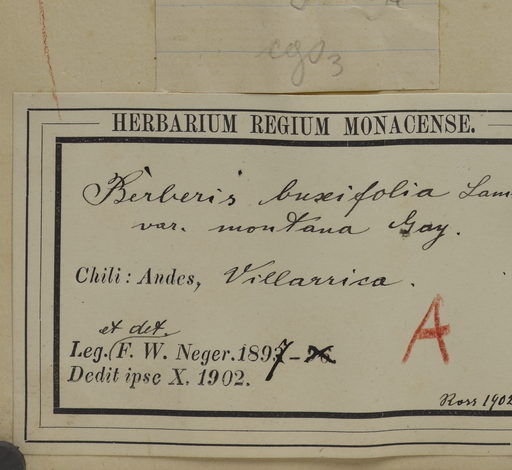 cgo3
HERBARIUM REGIUM MONACENSE.
Berberis buxifolia Lam
var. montana Gay.
Chili: Andes, Villarrica.
et det.
Leg. (F. W. Neger. 1897-
Dedit ipse X. 1902.
A
Ross 1902